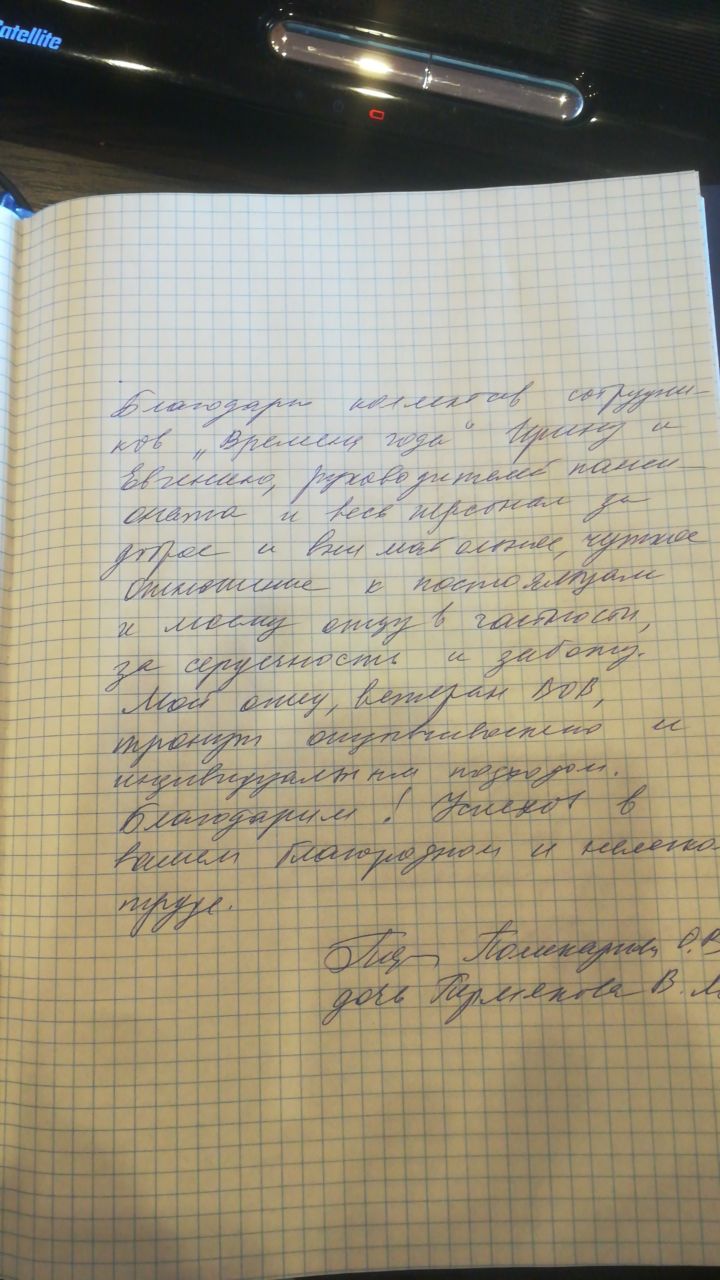 Satellite
Благодарю коллектив сотрудни-
ков "Времена года" Ирину и
Евгению, руководителей панси-
оната и весь персонал за
доброе и внимательное, чуткое
отношение к постояльцам
и моему отцу в частности,
за сердечность и заботу.
Мой отец, ветеран ВОВ,
тронут отзывчивостью и
индивидуальным подходом.
Благодарим! Успехов в
вашем благородном и нелегко
труде.
О.В
дочь Пермякова В. М